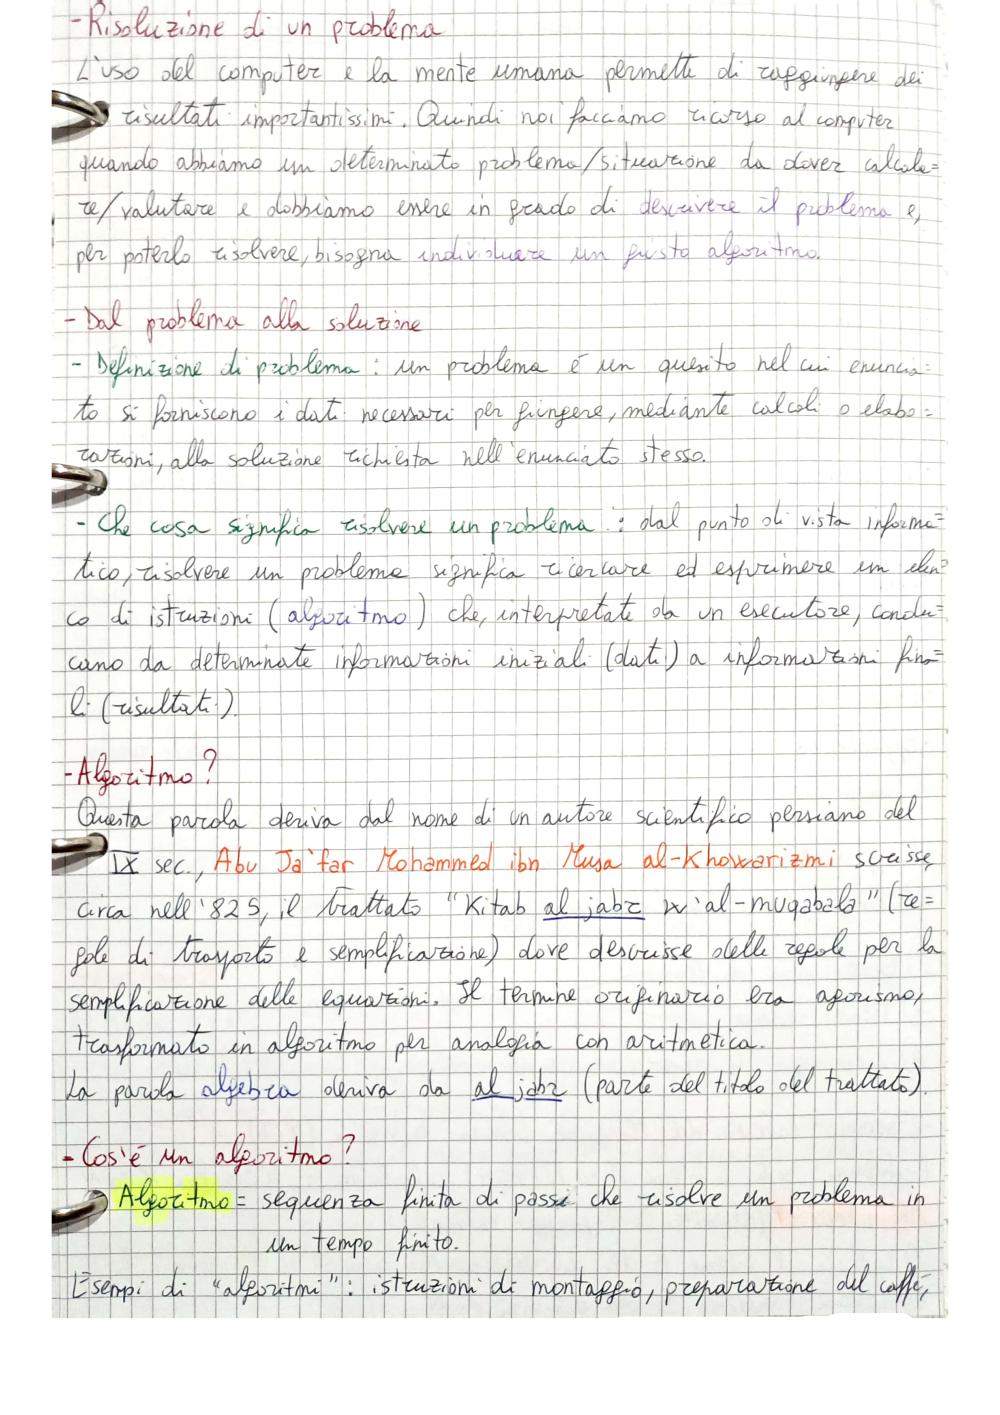 -Risoluzione di un problema
L'uso del computer e la mente umana permette di raggiungere dei
risultati importantissimi. Quindi noi facciamo ricorso al computer
quando abbiamo un determinato problema/situazione da dover calcola=
re/valutare e dobbiamo essere in grado di descrivere il problema e,
per poterlo risolvere, bisogna individuare un giusto algoritmo.
- Dal problema alla soluzione
- Definizione di problema : un problema é un quesito nel cui enuncia=
to si forniscono i dati necessari per giungere, mediante calcoli o elabo=
razioni, alla soluzione richiesta nell'enunciato stesso.
- Che cosa significa risolvere un problema : dal punto di vista informa=
tico, risolvere un problema significa ricercare ed esprimere un elen=
co di istruzioni (algoritmo) che, interpretate da un esecutore, condu=
cano da determinate informazioni iniziali (dati) a informazioni fina=
li (risultati)
-Algoritmo?
Questa parola deriva dal nome di un autore scientifico persiano del
IX sec., Abu Ja'far Mohammed ibn Musa al-Khowarizmi scrisse,
circa nell'825, il trattato "Kitab al jabr w'al-muqabala" (re=
gole di trasporto e semplificazione) dove descrisse delle regole per la
semplificazione delle equazioni. Il termine originario era agorismo,
trasformato in algoritmo per analogia con aritmetica.
La parola algebra deriva da al jabr (parte del titolo del trattato).
- Cos'é un algoritmo?
Algoritmo = sequenza finita di passi che risolve un problema in
un tempo finito.
Esempi di "algoritmi": istruzioni di montaggio, preparazione del caffè,